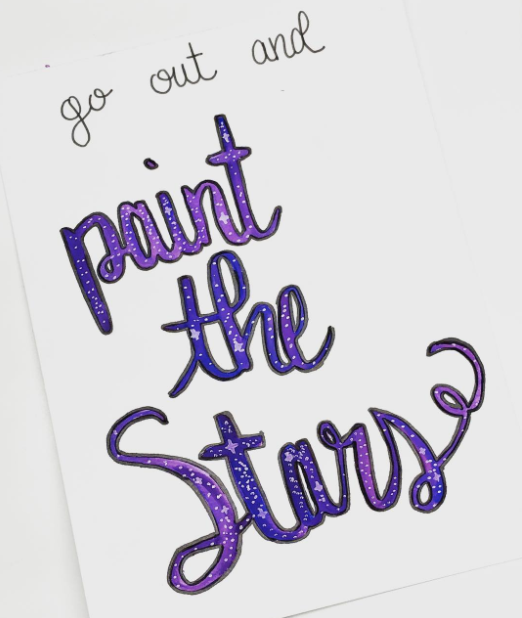 go out and
paint
the
Stars